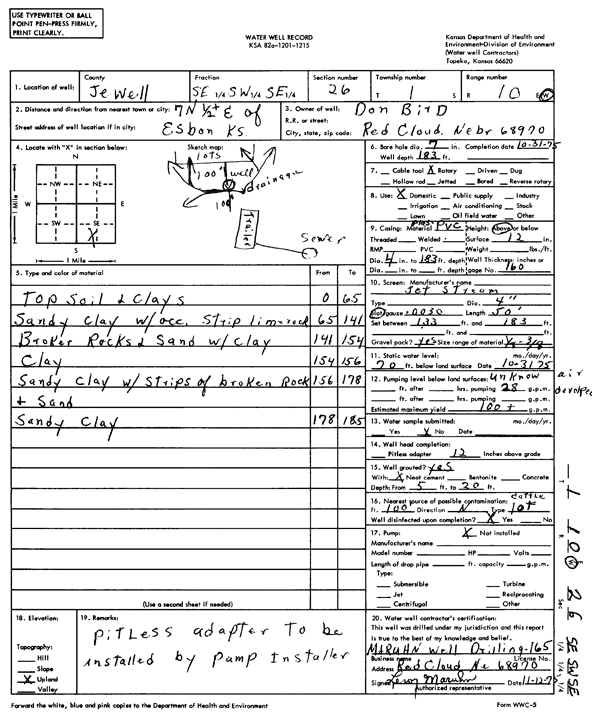 USE TYPEWRITER OR BALL
POINT PEN-PRESS FIRMLY,
PRINT CLEARLY.
WATER WELL RECORD
KSA 82a-1201-1215
Kansas Department of Health and
Environment-Division of Environment
(Water well Contractors)
Topeka, Kansas 66620
1. Location of well:
County
Jewell
Fraction
SE 1/4 SW 1/4 SE 1/4
Section number
26
Township number
T 1 S
Range number
R 10 E/W
2. Distance and direction from nearest town or city: 7N 1/2+ E of
Street address of well location if in city: Esbon Ks.
3. Owner of well: Don Bird
R.R. or street:
City, state, zip code: Red Cloud, Nebr 68970
4. Locate with "X" in section below:
N
NW NE
W E
SW SE
X
S
1 Mile
1 Mile
Sketch map:
lots
100' well
drainage
100'
Trailer
Sewer
5. Type and color of material From To
Top Soil & Clays 0 65
Sandy Clay w/occ. Strip limerock 65 141
Broken Rocks & Sand w/ Clay 141 154
Clay 154 156
Sandy Clay w/ Strips of broken Rock 156 178
& Sand
Sandy Clay 178 185
(Use a second sheet if needed)
6. Bore hole dia. 7 in. Completion date 10-31-75
Well depth 183 ft.
7. Cable tool X Rotary Driven Dug
Hollow rod Jetted Bored Reverse rotary
8. Use: X Domestic Public supply Industry
Irrigation Air conditioning Stock
Lawn Oil field water Other
9. Casing: Material PVC Height: Above or below
Threaded Welded Surface 12 in.
RMP PVC Weight lbs./ft.
Dia. 4 in. to 183 ft. depth Wall Thickness: inches or
Dia. in. to ft. depth gage No. 160
10. Screen: Manufacturer's name
Jet Stream
Type Dia. 4"
Slot/gauze .0030 Length 50'
Set between 133 ft. and 183 ft.
ft. and ft.
Gravel pack? yes Size range of material 1/8-3/8
11. Static water level: mo./day/yr.
70 ft. below land surface Date 10-31-75
12. Pumping level below land surfaces: unknow
ft. after hrs. pumping 28 g.p.m.
ft. after hrs. pumping g.p.m.
Estimated maximum yield 100+ g.p.m.
air
developed
13. Water sample submitted: mo./day/yr.
Yes X No Date
14. Well head completion:
Pitless adapter 12 Inches above grade
15. Well grouted? yes
With: X Neat cement Bentonite Concrete
Depth: From 5 ft. to 20 ft.
16. Nearest source of possible contamination: cattle
ft. 100 Direction N Type lot
Well disinfected upon completion? X Yes No
17. Pump: X Not installed
Manufacturer's name
Model number HP Volts
Length of drop pipe ft. capacity g.p.m.
Type:
Submersible Turbine
Jet Reciprocating
Centrifugal Other
18. Elevation:
Topography:
Hill
Slope
X Upland
Valley
19. Remarks:
pitless adapter to be
installed by Pump Installer
20. Water well contractor's certification:
This well was drilled under my jurisdiction and this report
is true to the best of my knowledge and belief.
MARUHN Well Drilling-165
Business name License No.
Address Red Cloud Ne 68970
Signed Leroy Maruhn Date 11-12-75
Authorized representative
T 1 R 10 W Sec 26 SE 1/4 SW 1/4 SE 1/4
Forward the white, blue and pink copies to the Department of Health and Environment
Form WWC-5